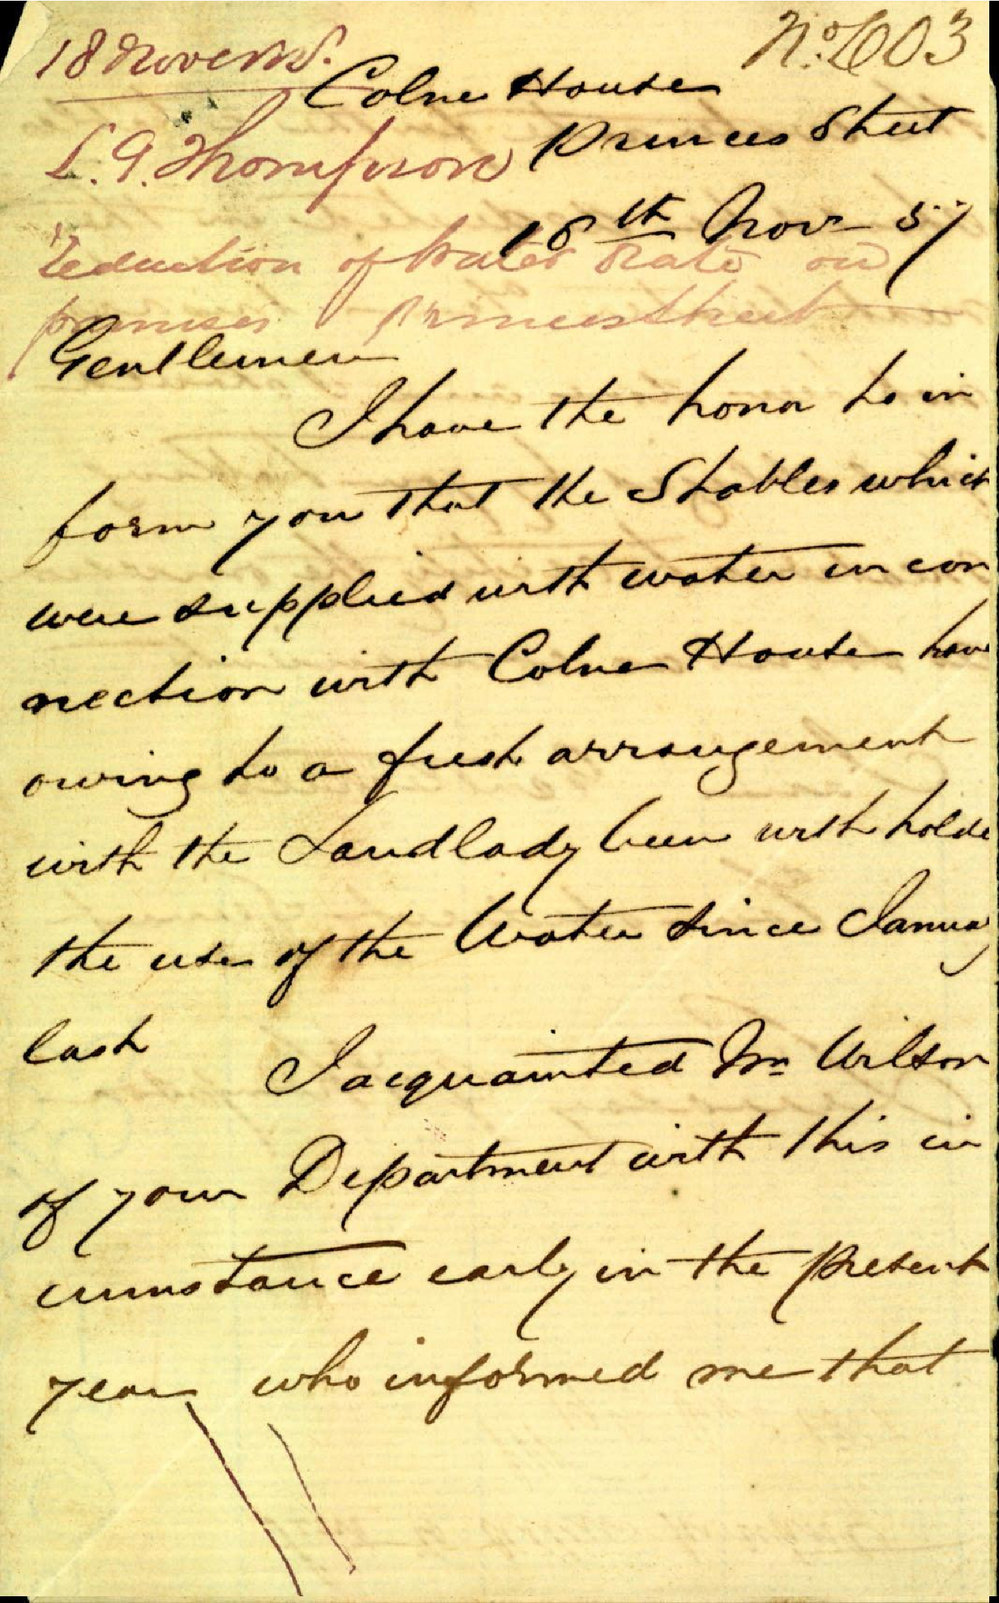 18 Novemb.
No. 603
Colne House
L. G. Thompson
Princes Street
18th Novr 57
reduction of Water Rate on
premises Princes Street
Gentlemen
I have the honor to in
form you that the Stables which
were supplied with water in con
nection with Colne House have
owing to a fresh arrangement
with the Landlady been withholde
the use of the Water since Januay
last
I acquainted Mr Wilson
of your Department with this cir
cumstance early in the present
year who informed me that